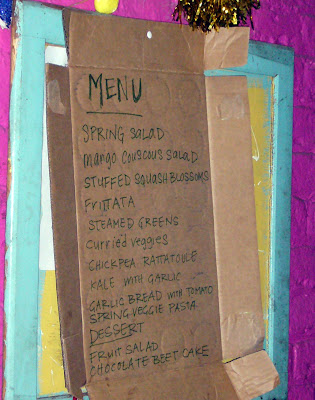 MENU
SPRING SALAD
Mango Couscous SALAD
STUFFED SQUASH BLOSSOMS
FriTTATA
STEAMED GREENS
Curried veggies
CHICKPEA RATTATOULE
KALE WITH GARLIC
GARLIC BREAD WITH TOMATO
SPRING VEGGIE PASTA
DESSERT
FRUIT SALAD
CHOCOLATE BEET CAKE